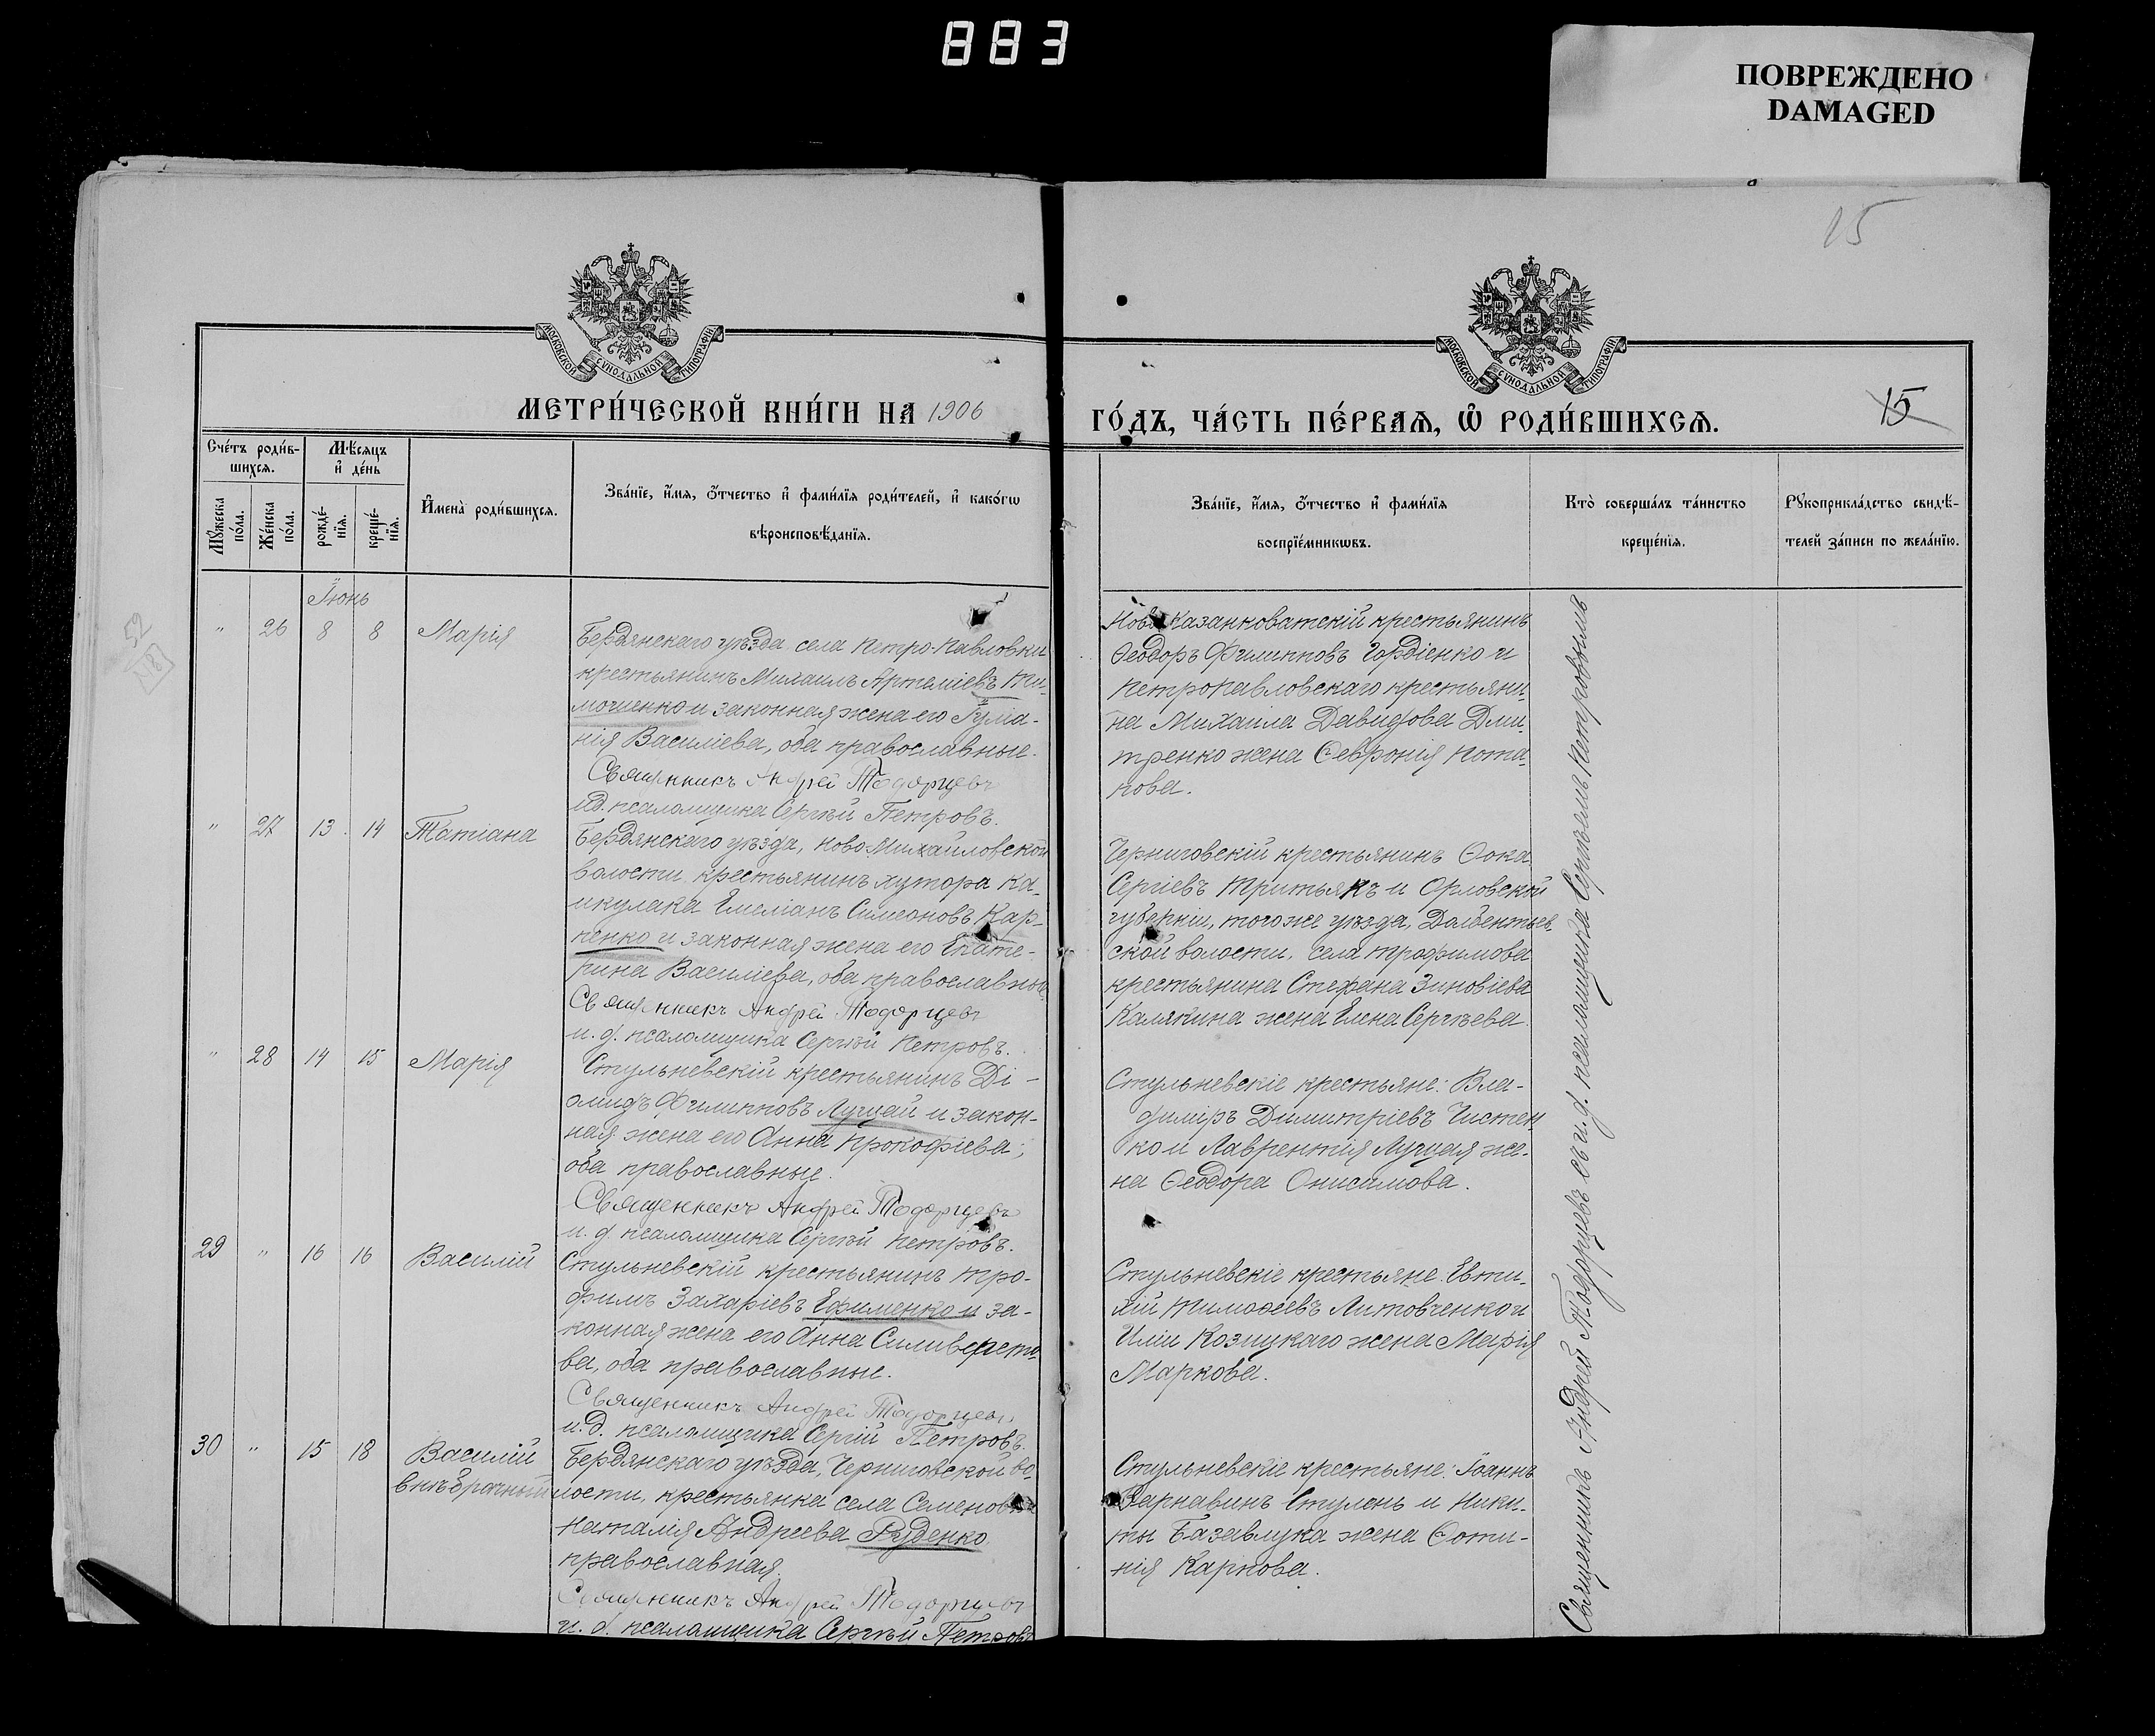 883
ПОВРЕЖДЕНО
DAMAGED
15
МОСКОВСКОЙ СУНОДАЛЬНОЙ ТИПОГРАФІИ
МОСКОВСКОЙ СУНОДАЛЬНОЙ ТИПОГРАФІИ
МЕТРИ́ЧЕСКОЙ КНИ́ГИ НА 1906
ГО́ДЪ, ЧА́СТЬ ПЕ́РВАѦ, Ѡ҆ РОДИ́ВШИХСѦ.
15
Сче́тъ роди́в-
шихсѧ.
Мѣ́сѧцъ
и҆ де́нь
Мꙋ́жеска
по́ла.
Же́нска
по́ла.
рожде́-
нїѧ.
креще́-
нїѧ.
И҆мена̀ роди́вшихсѧ.
Зва́нїе, и҆́мѧ, ѻ҆́тчество и҆ фами́лїѧ роди́телей, и҆ како́гѡ
вѣроисповѣ́данїѧ.
Зва́нїе, и҆́мѧ, ѻ҆́тчество и҆ фами́лїѧ
воспрїе́мникѡвъ.
Кто̀ соверша́лъ та́инство
креще́нїѧ.
Рꙋкоприкла́дство свидѣ́-
телей за́писи по жела́нїю.
52
18
Іюнь
" 26 8 8 Марія
Бердянскаго уѣзда села Петро-Павловки
крестьянинъ Михаилъ Артеміевъ Ти-
мошенко и законная жена его Гула-
нія Василіева, оба православные.
Священникъ Андрей Тодорцевъ
и.д. псаломщика Сергѣй Петровъ.
Ново Казанковатскій крестьянинъ
Ѳеодоръ Филипповъ Гордіенко и
Петропавловскаго крестьяни-
на Михаила Давидова Дми-
тренко жена Ѳевронія Пота-
пова.
" 27 13 14 Татіана
Бердянскаго уѣзда, Ново-Михайловской
волости крестьянинъ хутора Ка-
икулака Емеліанъ Симеоновъ Кар-
пенко и законная жена его Екате-
рина Василіева, оба православные
Священникъ Андрей Тодорцевъ
и.д. псаломщика Сергѣй Петровъ.
Черниговскій крестьянинъ Ѳока
Сергіевъ Тритьякъ и Орловской
губерніи, того же уѣзда, Далбентьев-
ской волости, села Трофимова
крестьянина Стефана Зиновіева
Калякина жена Елена Сергѣева.
" 28 14 15 Марія
Стульневскій крестьянинъ Ді-
омидъ Филипповъ Лущай и закон-
ная жена его Анна Прокофіева;
оба православные.
Священникъ Андрей Тодорцевъ
и.д. псаломщика Сергѣй Петровъ.
Стульневскіе крестьяне: Вла-
диміръ Димитріевъ Чистен-
ко и Лаврентія Лущая же-
на Ѳеодора Онисимова.
29 " 16 16 Василій
Стульневскій крестьянинъ Тро-
фимъ Захаріевъ Ефименко и за-
конная жена его Анна Силиверсто-
ва, оба православные.
Священникъ Андрей Тодорцевъ
и.д. псаломщика Сергій Петровъ.
Стульневскіе крестьяне: Евти-
мій Тимоѳеевъ Литовченко и
Иліи Козицкаго жена Марія
Маркова.
30 " 15 18 Василій
внѣбрачный
Бердянскаго уѣзда, Черниговской во-
лости, крестьянка села Семеновки
Наталія Андреева Руденко
православная.
Священникъ Андрей Тодорцевъ
и.д. псаломщика Сергѣй Петровъ
Стульневскіе крестьяне: Іоаннъ
Варнавинъ Стулень и Ники-
ты Базавлука жена Фоти-
нія Карпова.
Священникъ Андрей Тодорцевъ съ и.д. псаломщика Сергѣемъ Петровымъ